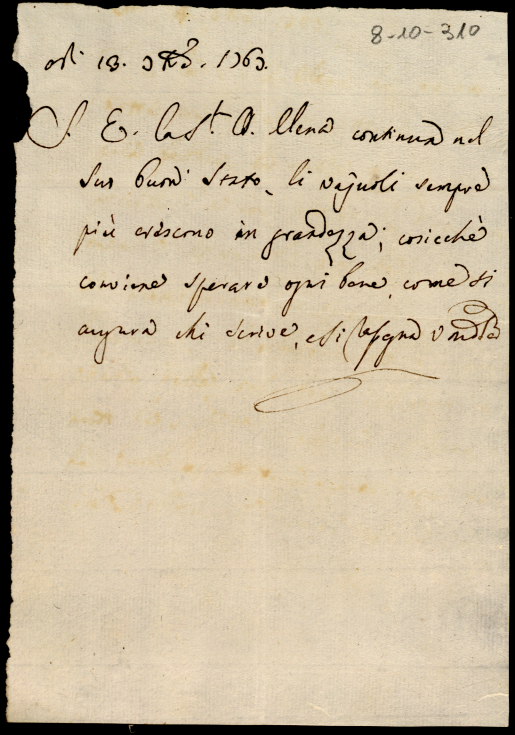 8-10-310
adi 13. 1763.
S. E. la Sra. Elena continua nel
suo buon stato, li vajuoli sempre
più crescono in grandezza; cosicchè
conviene sperare ogni bene, come si
augura chi scrive, e si rasegna